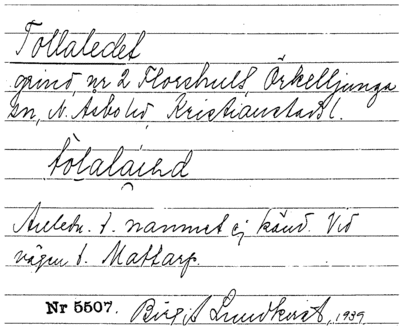 Tollaledet
grind, nr 2 Florshult, Örkelljunga
sn, N. Åsbo hd, Kristianstads l.
Anledn. t. namnet ej känd. Vid
vägen t. Mattarp.
Nr 5507. Birgit Lundkvist, 1939